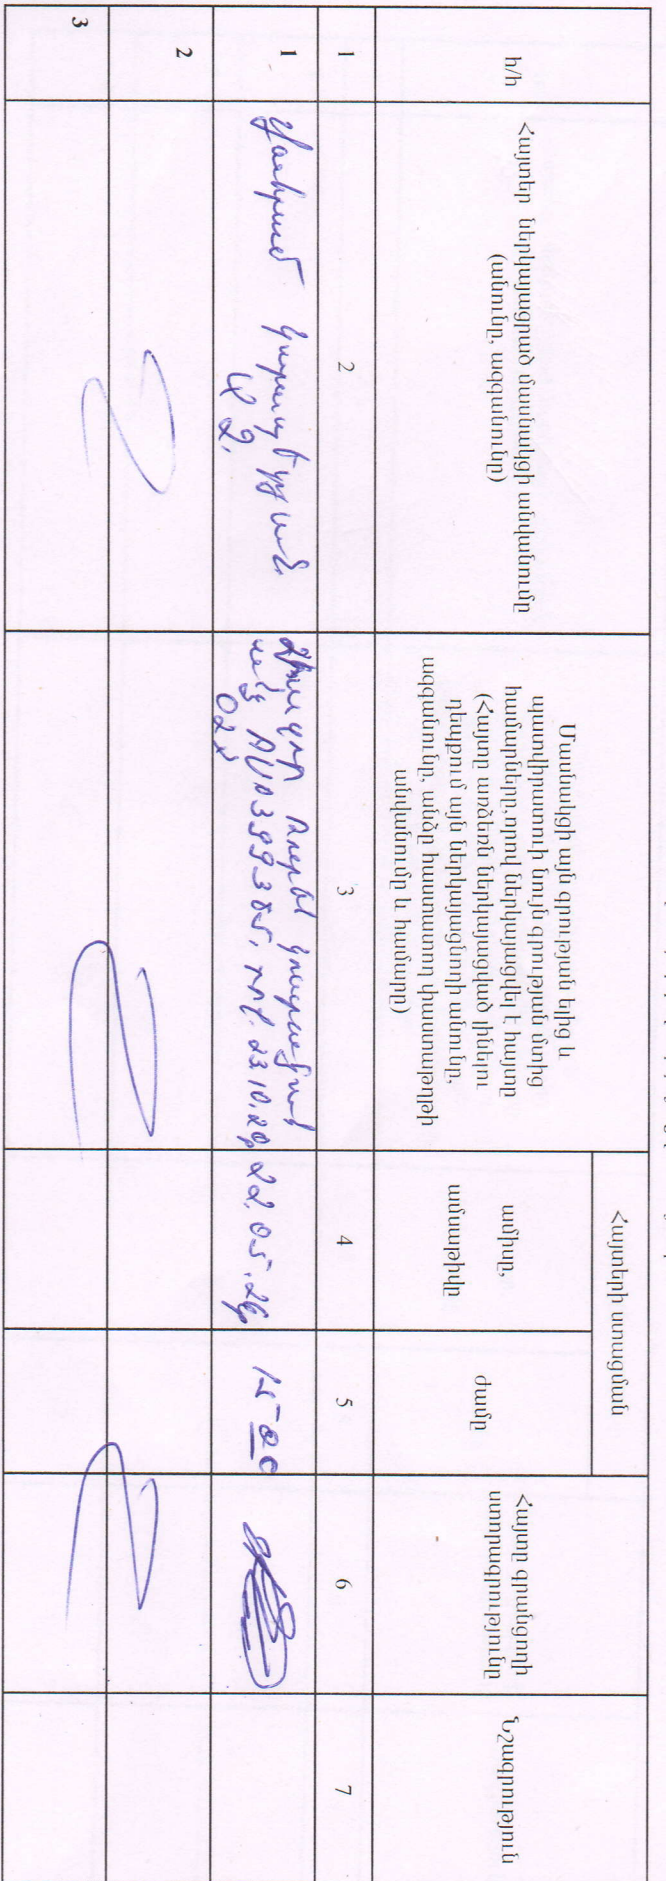 հ/հ
Հայտեր ներկայացրած մասնակցի անվանումը
(անունը, ազգանունը)
Մասնակցի այն գրության ելից և
պատվիրատուի նույն գրության մտից
համարները, որով ներկայացվել է հայտը
(Հայտը առձեռն ներկայացված լինելու
դեպքում այն ներկայացնողի անունը,
ազգանունը, անձը հաստատող փաստաթղթի
անվանումը և համարը)
Հայտերի ստացման
ամիսը,
ամսաթիվը
ժամը
Հայտը գրանցողի
ստորագրությունը
Նշագրություն
1
2
3
4
5
6
7
1
Կարապետյան
ԱՁ
22.05.26
15 00
2
3